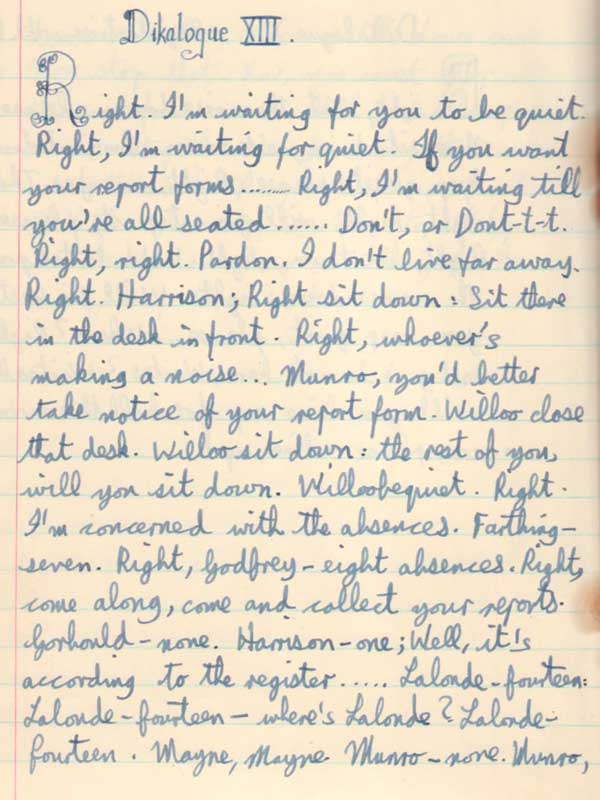 Dikalogue XIII.
Right. I'm waiting for you to be quiet.
Right, I'm waiting for quiet. If you want
your report forms......... Right, I'm waiting till
you're all seated...... Don't, er Dont-t-t.
Right, right. Pardon. I don't live far away.
Right. Harrison; Right sit down: Sit there
in the desk in front. Right, whoever's
making a noise... Munro, you'd better
take notice of your report form. Willoo close
that desk. Willoo sit down: the rest of you,
will you sit down. Willoobequiet. Right.
I'm concerned with the absences. Farthing-
seven. Right, Godfrey-eight absences. Right,
come along, come and collect your reports.
Gorhould-none. Harrison-one; Well, it's
according to the register..... Lalonde-fourteen:
Lalonde-fourteen-where's Lalonde? Lalonde-
fourteen. Mayne, Mayne Munro-none. Munro,